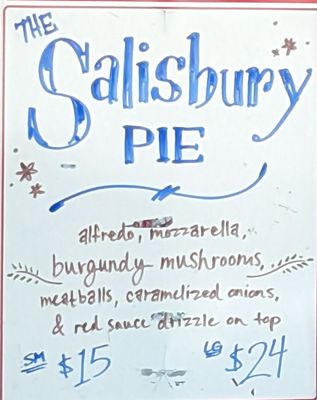 THE
Salisbury
PIE
alfredo, mozzarella,
burgundy mushrooms,
meatballs, caramelized onions,
& red sauce drizzle on top
SM $15 LG $24